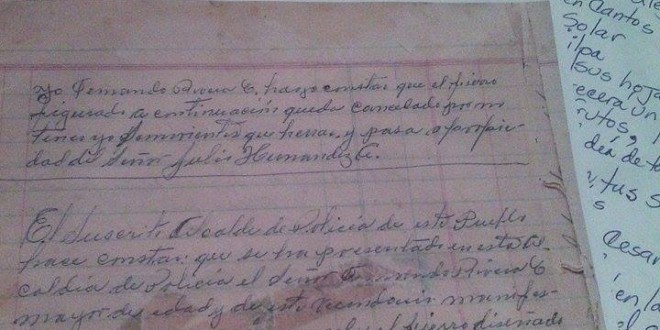 Yo Fernando Rivera C. hago constar que el fierro
figurado a continuación queda cancelado por no
tener yo semovientes que herrar, y pasa a propie-
dad del Señor Julio Hernandez G.
El Suscrito Alcalde de Policía de este Pueblo
hace constar: que se ha presentado en esta Al
caldia de Policía el Señor Fernando Rivera C
mayor de edad y de este vecindario manifes-
el fierro diseñado
en Cantos
Solar
ilpa
sus hoja
rutos,
dea de
tus s
s
Cesar
en la